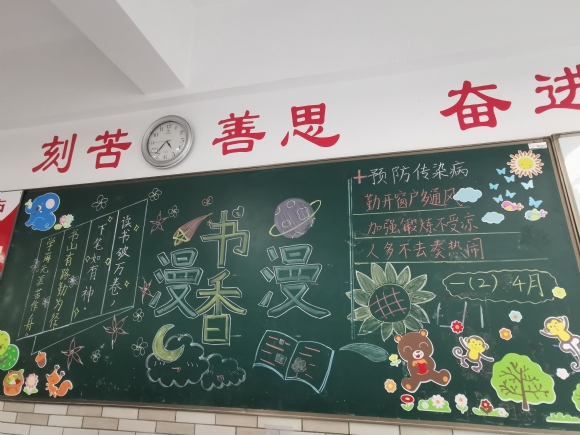 刻苦 善思 奋进
读书破万卷，
下笔如有神。
书山有路勤为径
学海无涯苦作舟
书香
漫漫
预防传染病
勤开窗户多通风
加强锻炼不受凉
人多不去凑热闹
一(2) 4月